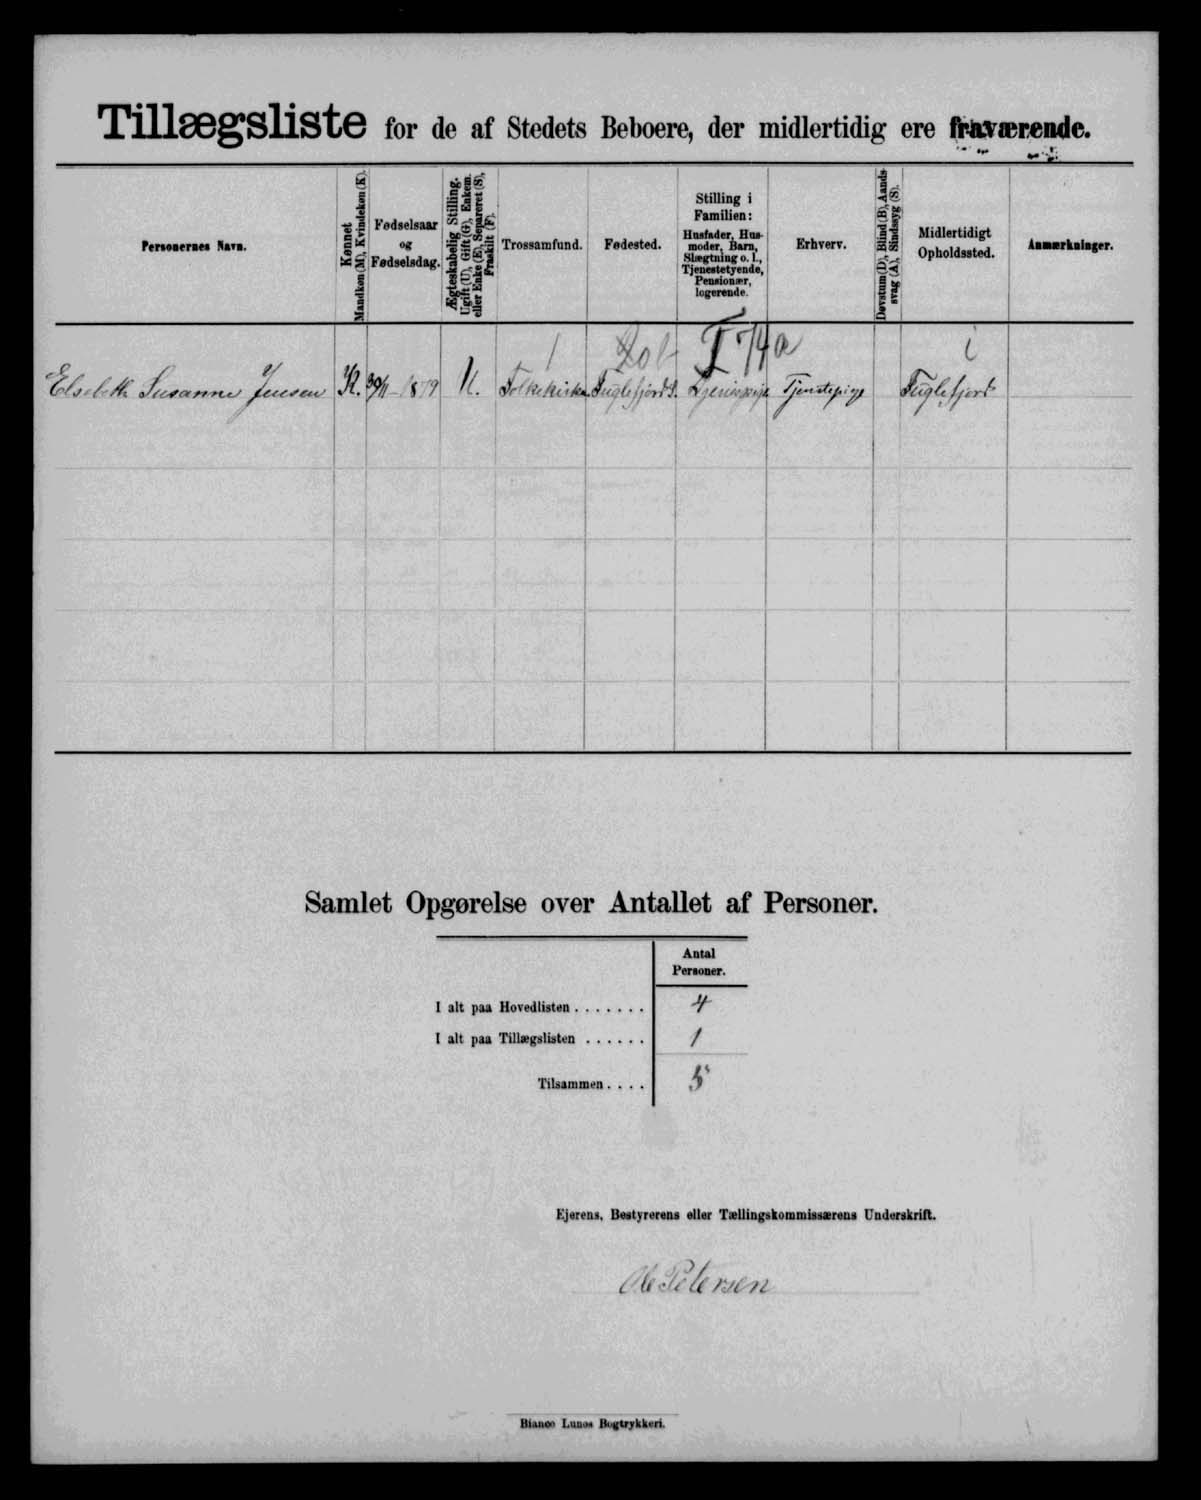 Tillægsliste for de af Stedets Beboere, der midlertidig ere fraværende.
Personernes Navn.
Kønnet
Mandkøn (M), Kvindekøn (K).
Fødselsaar
og
Fødselsdag.
Ægteskabelig Stilling.
Ugift (U), Gift (G), Enkem.
eller Enke (E), Separeret (S),
Fraskilt (F).
Trossamfund.
Fødested.
Stilling i
Familien:
Husfader, Hus-
moder, Barn,
Slægtning o. l.,
Tjenestetyende,
Pensionær,
logerende.
Erhverv.
Døvstum (D), Blind (B), Aands-
svag (A), Sindssyg (S).
Midlertidigt
Opholdssted.
Anmærkninger.
1 T 74 a i
Elsebeth Susanne Jensen K. 30/11 1879 U. Folkekirken Fuglefjord S. Tjenestepige Fuglefjord
Samlet Opgørelse over Antallet af Personer.
Antal
Personer.
I alt paa Hovedlisten . . . . . . . 4
I alt paa Tillægslisten . . . . . . 1
Tilsammen . . . . 5
Ejerens, Bestyrerens eller Tællingskommissærens Underskrift.
Ole Petersen
Bianco Lunos Bogtrykkeri.